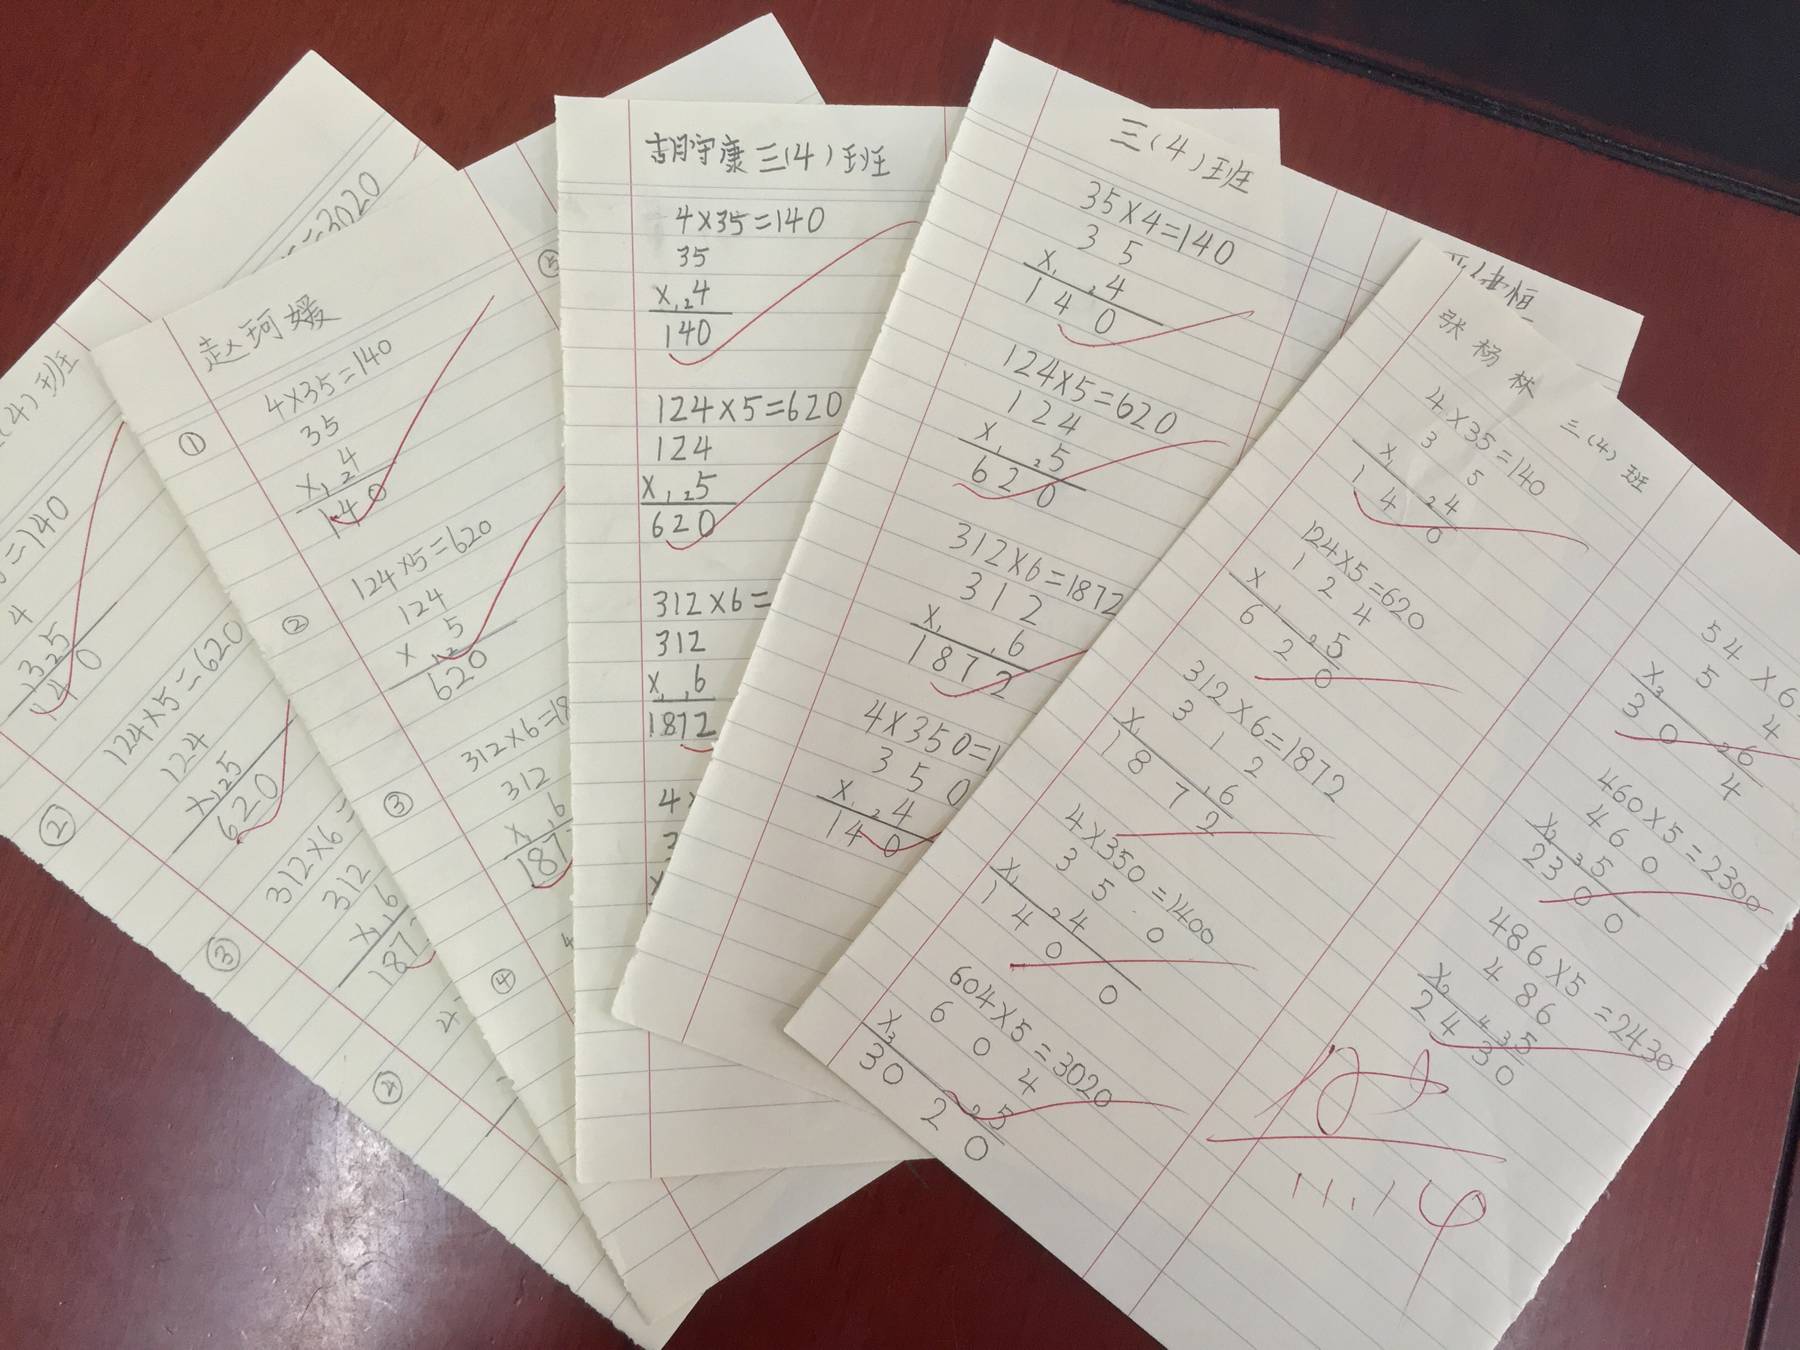 =3020
(4)班
=140
4
35
140
②
124×5=620
124
×125
620
③
312×6=
312
×1,6
187
④
赵珂媛
①
4×35=140
35
×1,24
140
②
124×5=620
124
×1,25
620
③
312×6=18
312
×1,6
187
④
⑤
胡守康三(4)班
4×35=140
35
×1,24
140
124×5=620
124
×1,25
620
312×6=
312
×1,6
1872
4×
三(4)班
35×4=140
3 5
×1,24
1 4 0
124×5=620
1 2 4
×1,25
6 2 0
312×6=1872
3 1 2
×1,6
1 8 7 2
4×350=1
3 5 0
×1,24
1 4 0
恒
张杨林 三(4)班
4×35=140
3 5
×1 24
1 4 0
124×5=620
1 2 4
×1 25
6 2 0
312×6=1872
3 1 2
×1,6
18 7 2
4×350=1400
3 5 0
×1 24
1 4 0 0
604×5=3020
6 0 4
×3 25
30 2 0
54×6
5 4
×3 26
3 0 4
460×5=2300
4 6 0
×2 35
23 0 0
486×5=2430
4 8 6
×2 435
2 4 3 0
11.14